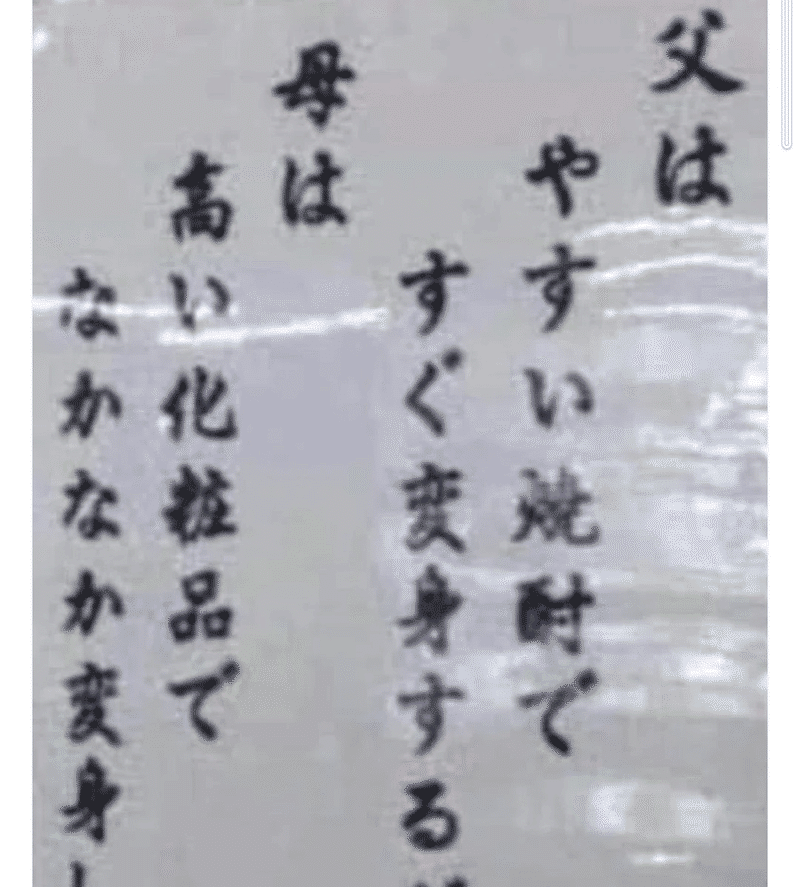 父は
やすい焼酎で
すぐ変身する
母は
高い化粧品で
なかなか変身